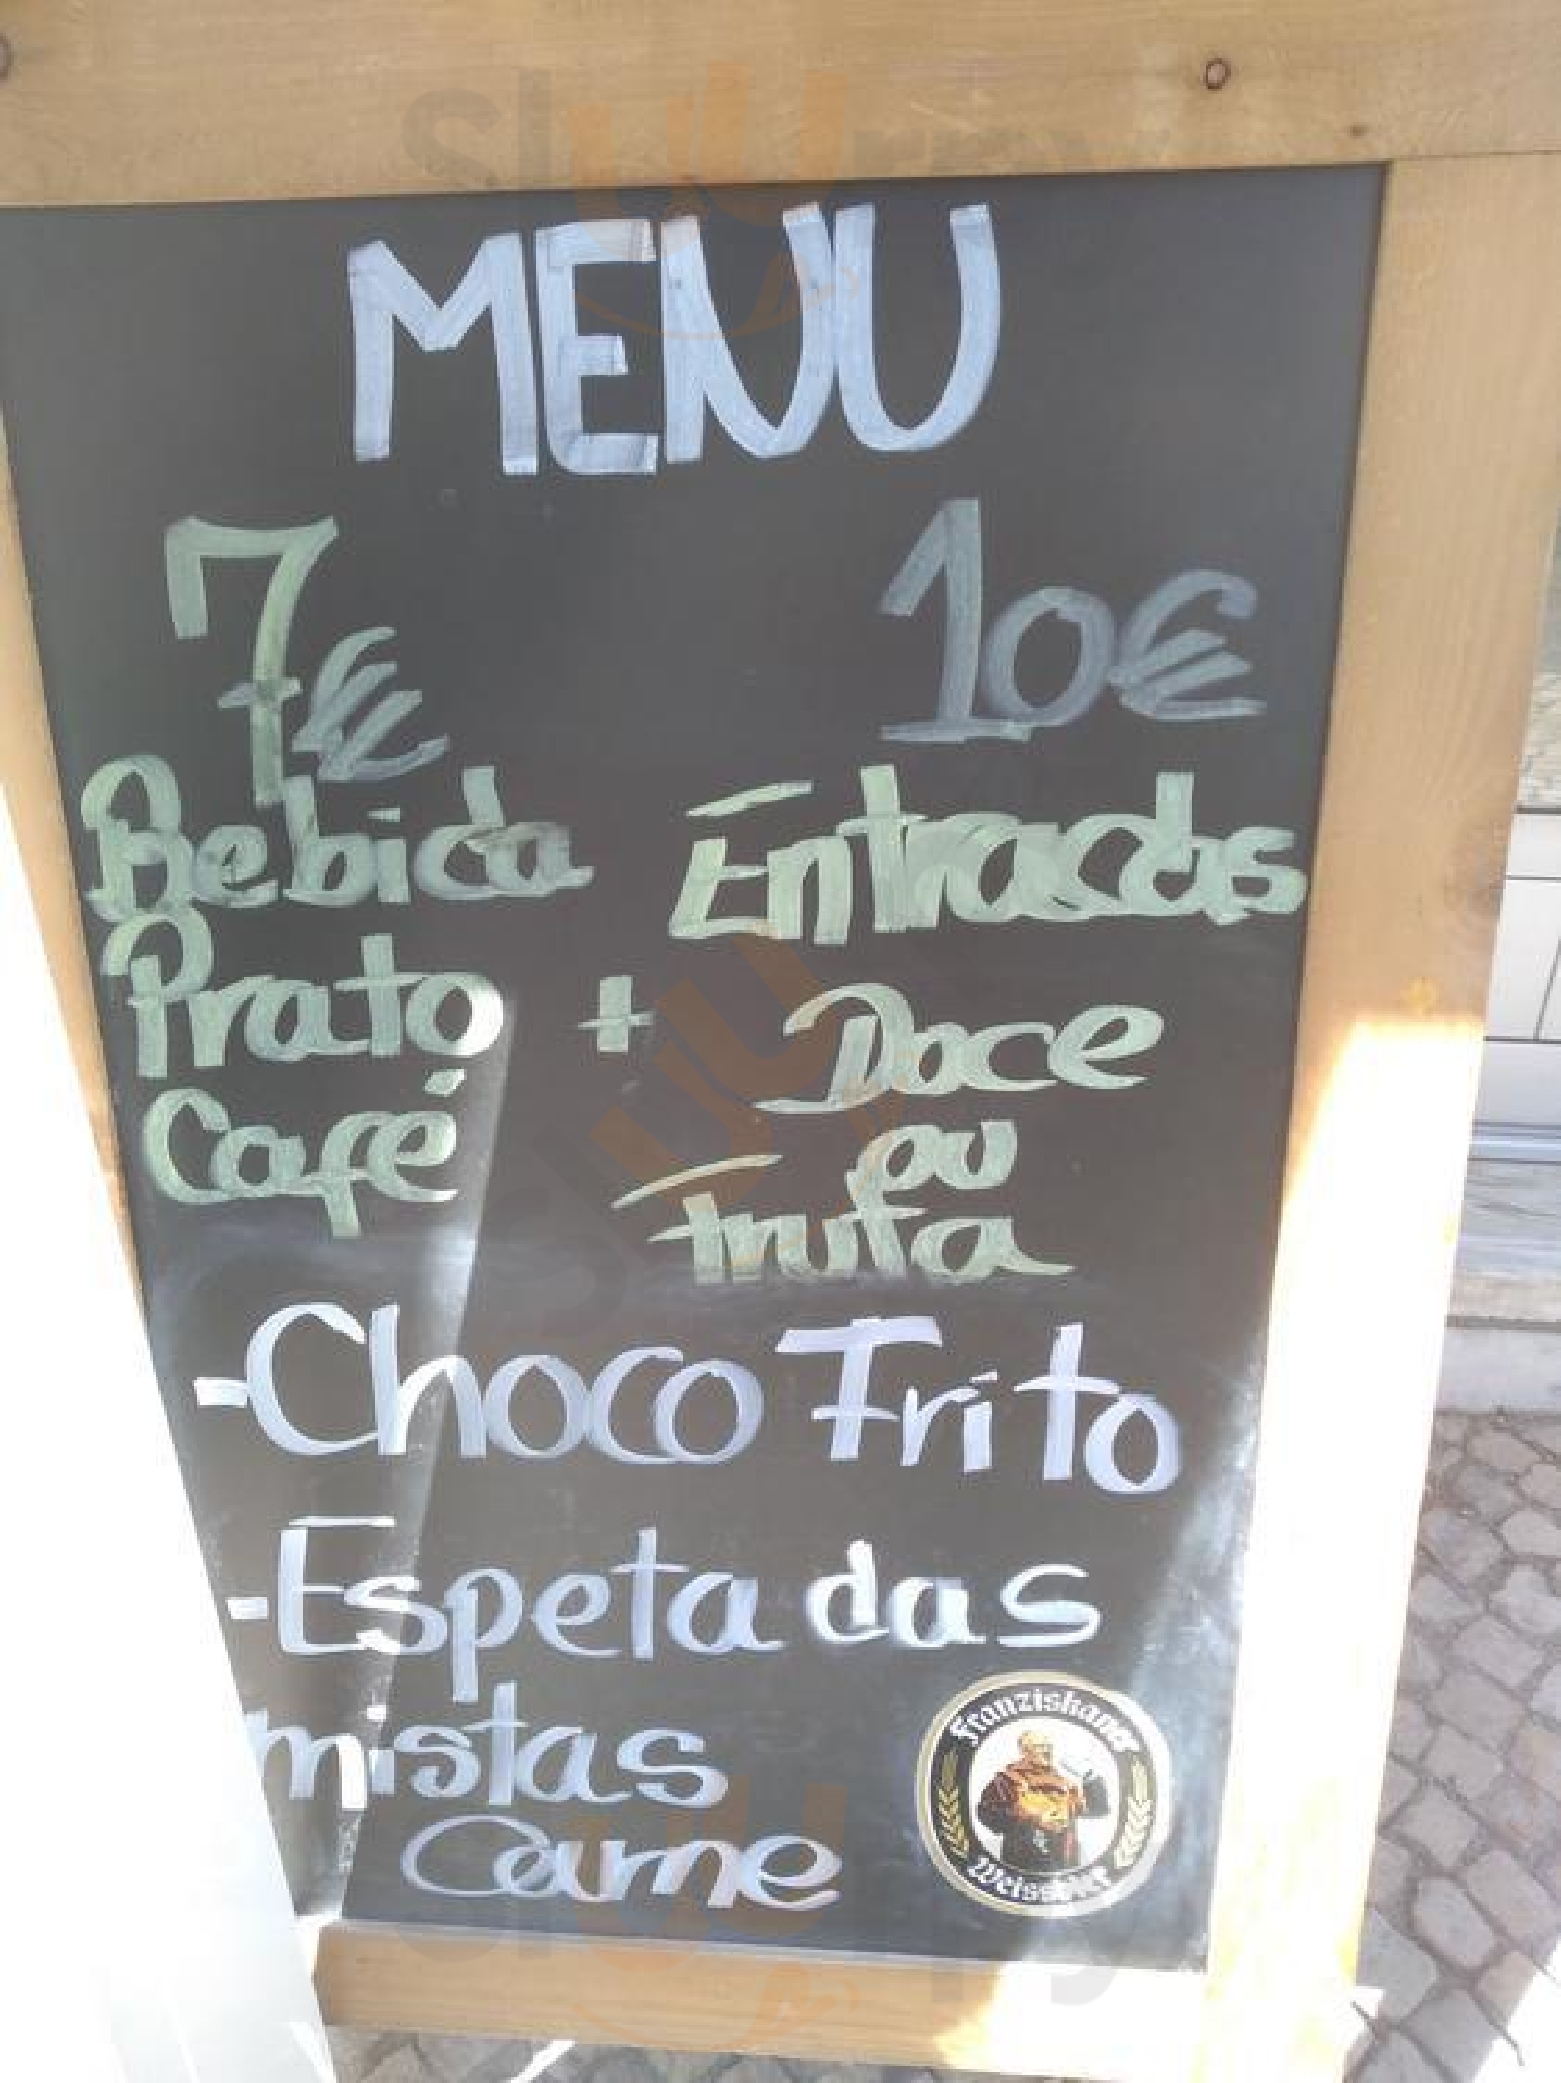 MENU
7€
10€
Bebida
Entradas
Prato + Doce
Café
ou
Trufa
-Choco Frito
-Espetadas
mistas
Carne
Franziskaner
Weissbier